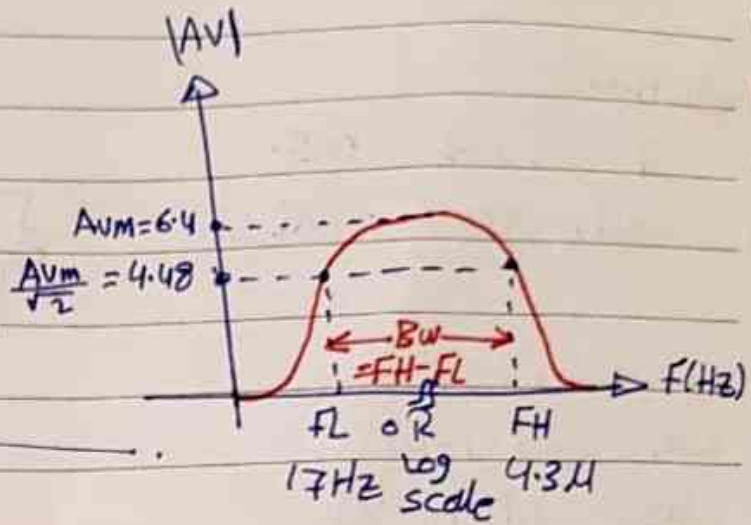 |AV|
AVM=6.4
AVM/√2 = 4.48
BW
=FH-FL
F(HZ)
FL OR FH
17HZ log 4.3M
scale